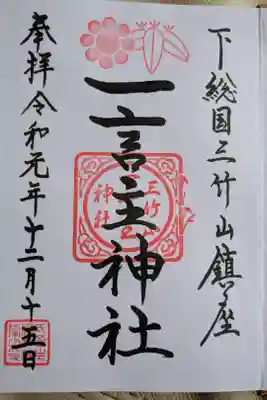 下総国三竹山鎮座
一言主神社
奉拝令和元年十二月十五日
三竹山
神社